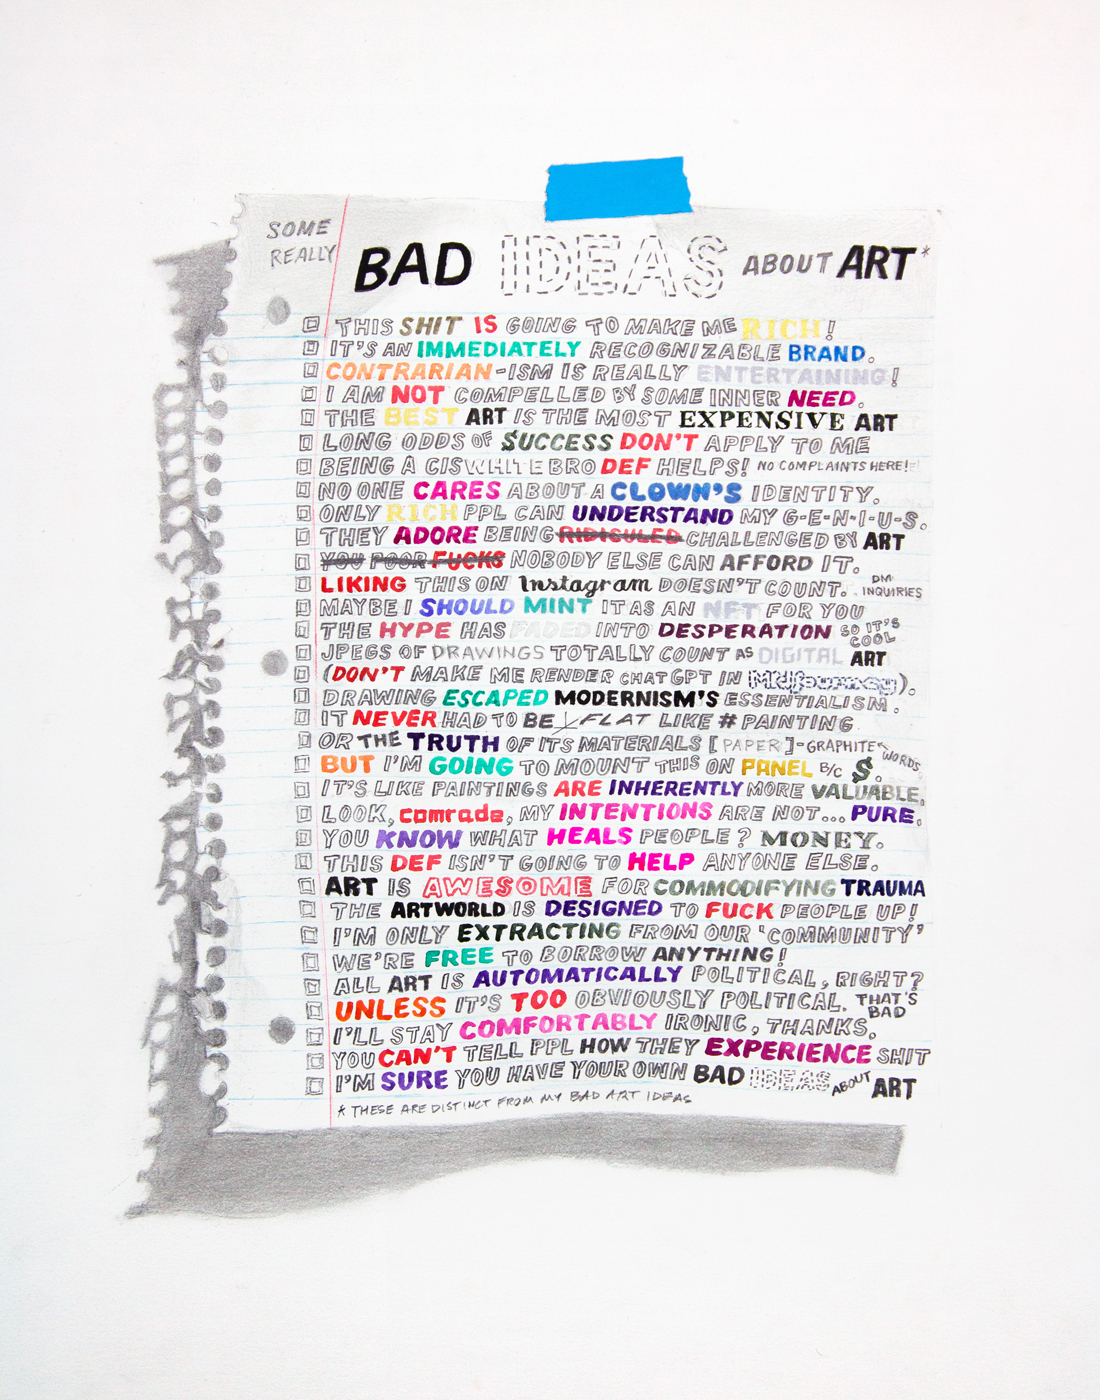 SOME REALLY BAD IDEAS ABOUT ART*
THIS SHIT IS GOING TO MAKE ME RICH!
IT'S AN IMMEDIATELY RECOGNIZABLE BRAND.
CONTRARIAN-ISM IS REALLY ENTERTAINING!
I AM NOT COMPELLED BY SOME INNER NEED.
THE BEST ART IS THE MOST EXPENSIVE ART
LONG ODDS OF $UCCESS DON'T APPLY TO ME
BEING A CISWHITE BRO DEF HELPS! NO COMPLAINTS HERE!
NO ONE CARES ABOUT A CLOWN'S IDENTITY.
ONLY RICH PPL CAN UNDERSTAND MY G-E-N-I-U-S.
THEY ADORE BEING RIDICULED CHALLENGED BY ART
YOU POOR FUCKS NOBODY ELSE CAN AFFORD IT.
LIKING THIS ON Instagram DOESN'T COUNT. DM INQUIRIES
MAYBE I SHOULD MINT IT AS AN NFT FOR YOU
THE HYPE HAS FADED INTO DESPERATION SO IT'S COOL
JPEGS OF DRAWINGS TOTALLY COUNT AS DIGITAL ART
(DON'T MAKE ME RENDER CHATGPT IN Midjourney).
DRAWING ESCAPED MODERNISM'S ESSENTIALISM.
IT NEVER HAD TO BE FLAT LIKE # PAINTING
OR THE TRUTH OF ITS MATERIALS [PAPER]-GRAPHITE WORDS
BUT I'M GOING TO MOUNT THIS ON PANEL B/C $.
IT'S LIKE PAINTINGS ARE INHERENTLY MORE VALUABLE.
LOOK, comrade, MY INTENTIONS ARE NOT... PURE.
YOU KNOW WHAT HEALS PEOPLE? MONEY.
THIS DEF ISN'T GOING TO HELP ANYONE ELSE.
ART IS AWESOME FOR COMMODIFYING TRAUMA
THE ARTWORLD IS DESIGNED TO FUCK PEOPLE UP!
I'M ONLY EXTRACTING FROM OUR 'COMMUNITY'
WE'RE FREE TO BORROW ANYTHING!
ALL ART IS AUTOMATICALLY POLITICAL, RIGHT?
UNLESS IT'S TOO OBVIOUSLY POLITICAL. THAT'S BAD
I'LL STAY COMFORTABLY IRONIC, THANKS.
YOU CAN'T TELL PPL HOW THEY EXPERIENCE SHIT
I'M SURE YOU HAVE YOUR OWN BAD IDEAS ABOUT ART
* THESE ARE DISTINCT FROM MY BAD ART IDEAS